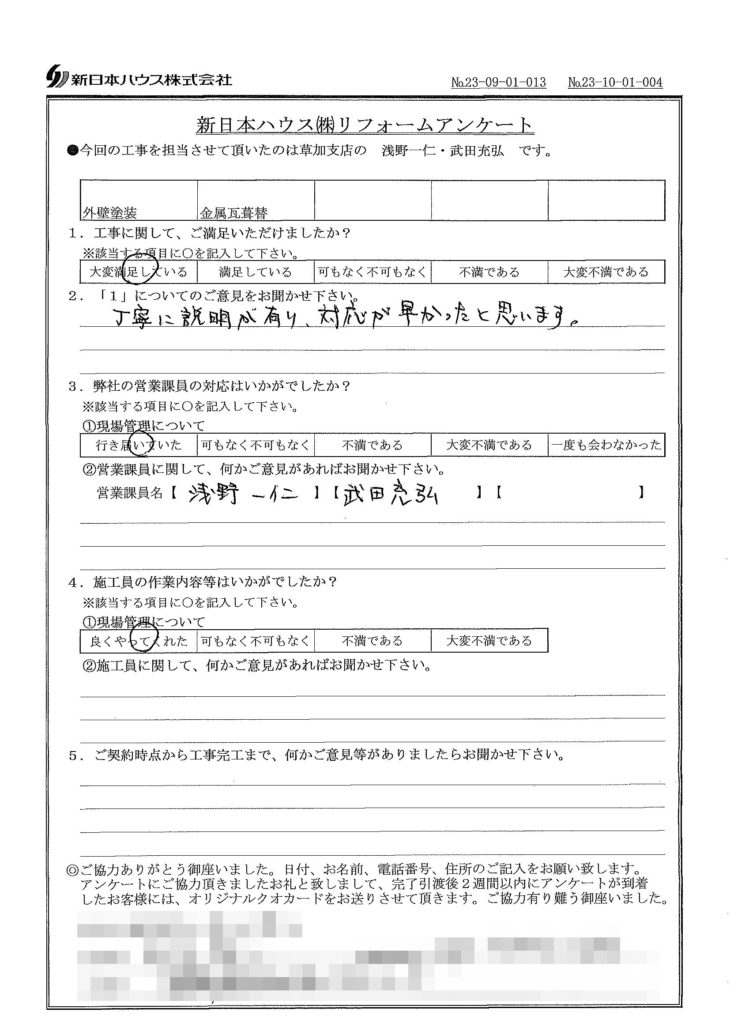 新日本ハウス株式会社
№23-09-01-013 №23-10-01-004
新日本ハウス㈱リフォームアンケート
●今回の工事を担当させて頂いたのは草加支店の 浅野一仁・武田充弘 です。
外壁塗装 金属瓦葺替
1．工事に関して、ご満足いただけましたか？
※該当する項目に○を記入して下さい。
大変満足している 満足している 可もなく不可もなく 不満である 大変不満である
2．「1」についてのご意見をお聞かせ下さい。
丁寧に説明が有り、対応が早かったと思います。
3．弊社の営業課員の対応はいかがでしたか？
※該当する項目に○を記入して下さい。
①現場管理について
行き届いていた 可もなく不可もなく 不満である 大変不満である 一度も会わなかった
②営業課員に関して、何かご意見があればお聞かせ下さい。
営業課員名【 浅野一仁 】【 武田充弘 】【 】
4．施工員の作業内容等はいかがでしたか？
※該当する項目に○を記入して下さい。
①現場管理について
良くやってくれた 可もなく不可もなく 不満である 大変不満である
②施工員に関して、何かご意見があればお聞かせ下さい。
5．ご契約時点から工事完工まで、何かご意見等がありましたらお聞かせ下さい。
◎ご協力ありがとう御座いました。日付、お名前、電話番号、住所のご記入をお願い致します。
アンケートにご協力頂きましたお礼と致しまして、完了引渡後２週間以内にアンケートが到着
したお客様には、オリジナルクオカードをお送りさせて頂きます。ご協力有り難う御座いました。